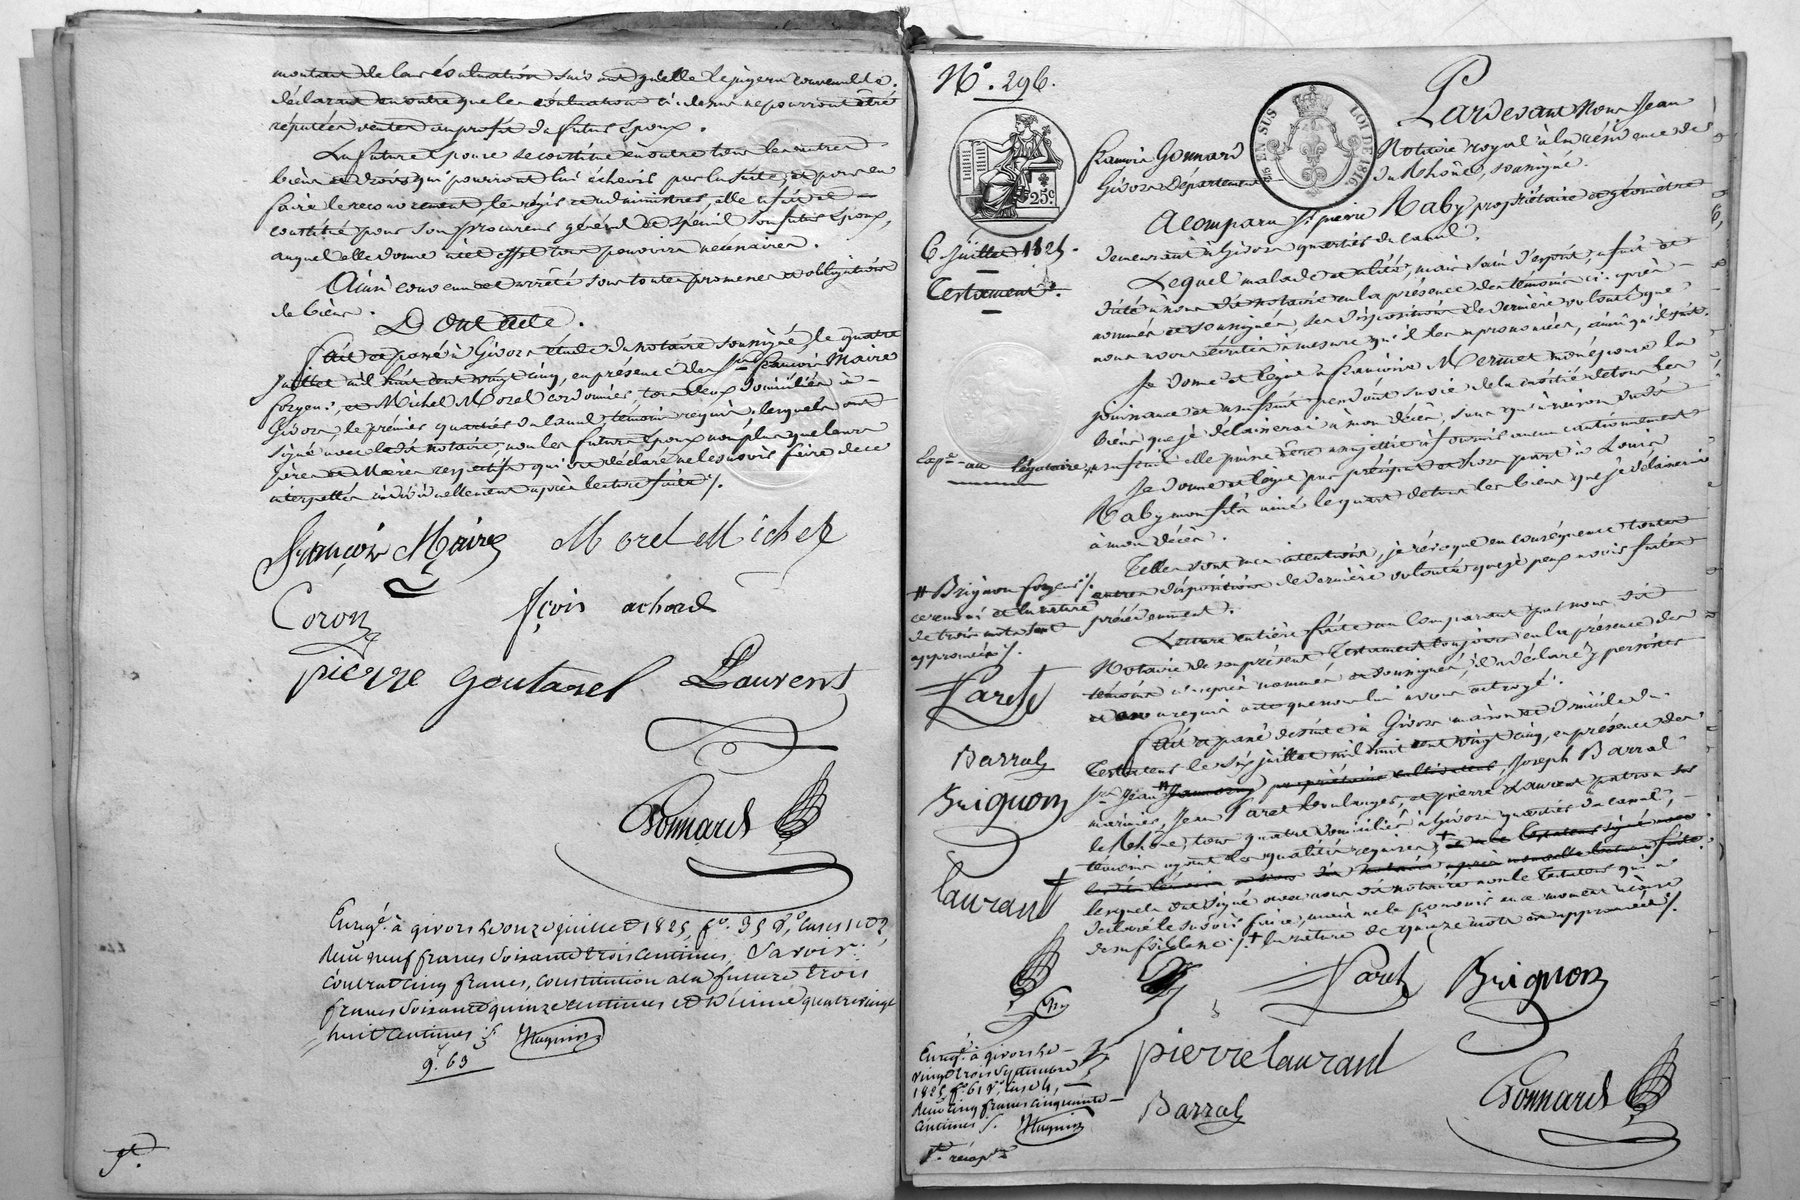 montant de leur évaluation suivant qu'elle le jugera convenable.
déclarant en outre que les évaluations ci-dessus ne pourront être
réputées ventes au profit du futur époux.
La future épouse se constitue en outre tous les autres
biens et droits qui pourront lui échevir par la suite, et pour en
faire le recouvrement, les régir et administrer, elle a fait et
constitué pour son procureur général et spécial son futur époux,
auquel elle donne à cet effet tous pouvoirs nécessaires.
Ainsi convenu et arrêté sous toutes promesses et obligations
de biens.
Dont acte.
Fait et passé à Givors étude du notaire soussigné, le quatre
juillet mil huit cent vingt cinq, en présence des Srs François Maire
forgeur, et Michel Morel cordonnier, tous deux domiciliés à
Givors, le premier quartier du canal, témoins requis; lesquels ont
signé avec le dit notaire, non les futurs époux non plus que leurs
pères et Mères respectifs qui ont déclaré ne le savoir faire de ce
interpellés individuellement après lecture faite ./.
François Maire Morel Michel
Coron fçois achard
pierre goutarel Laurent
Gonnard
Enregé. à givors le onze juillet 1825, fo. 35 Vo, cases 1 et 2,
Reçu neuf francs soixante trois centimes, Savoir:
contrat cinq francs, constitution a la future trois
francs soixante quinze centimes et Décime quatre vingt
huit centimes ./.
9. 63
No. 296.
Pardevant Nous Jean
François Gonnard Notaire royal à la résidence de
Givors Département du Rhône, soussigné.
EN SUS LOI DE 1816
25c
A comparu Sr pierre Naby propriétaire et géomètre
demeurant à Givors quartier du canal.
6 Juillet 1825.
Testament.
Lequel malade et alité, mais sain d'esprit, a fait et
dicté à nous dit notaire en la présence des témoins ci-après
nommés et soussignés, ses dispositions de dernière volonté que
nous avons écrites à mesure qu'il les a prononcées, ainsi qu'il suit.
Je donne et lègue à Françoise Mermet mon épouse la
jouissance et usufruit pendant sa vie de la moitié de tous les
biens que je délaisserai à mon décès, sans qu'à raison dudit
usufruit elle puisse être assujettie à fournir aucun cautionnement
Expé. au légataire
Je donne et lègue par préciput et hors part à Louis
Naby mon fils ainé le quart de tous les biens que je délaisserai
à mon décès.
Telles sont mes intentions, je révoque en conséquence toutes
autres dispositions de dernière volonté que je peux avoir faites
précédemment.
# Brignon forgeur ./.
ce renvoi et la rature
de trois mots sont
approuvés ./.
Lecture entière faite au comparant par nous dit
Notaire de son présent Testament toujours en la présence des
témoins ci-après nommés et soussignés, il a déclaré y persister
et en a requis acte que nous lui avons octroyé.
Fait et passé de suite à Givors maison et domicile du
Testateur le six juillet mil huit cent vingt cinq, en présence des
Srs Jean # propriétaire cultivateur, Joseph Barral
marinier, Jean Paret boulanger, et pierre Laurent patron sur
le Rhône, tous quatre domiciliés à Givors quartier du canal,
témoins ayant les qualités requises;
lesquels ont signé avec nous dit notaire non le Testateur qui a
déclaré le savoir faire, mais ne le pouvoir en ce moment à cause
de sa faiblesse ./. + la rature de quinze mots est approuvée ./.
Paret
Barral
Brignon
laurant
Paret Brignon
pierre laurant
Barral Gonnard
Enregé. à givors le
vingt trois Septembre
1825 fo. 61 Vo, case 4,
Reçu cinq francs cinquante
centimes ./.